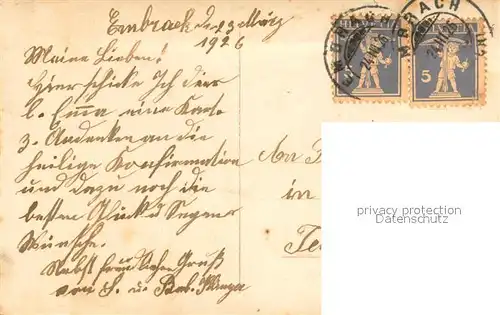 Embrach den 23 März
1926
Meine Lieben!
Hier schicke Ich dir
l. Emma eine Karte
z. Andenken an die
heilige Konfirmation
und dazu noch die
besten Glück u Segens
Wünsche.
Nebst freundlichem Gruß
von H. u. Bab.
EMBRACH
EMBRACH
5
An
in
privacy protection
Datenschutz